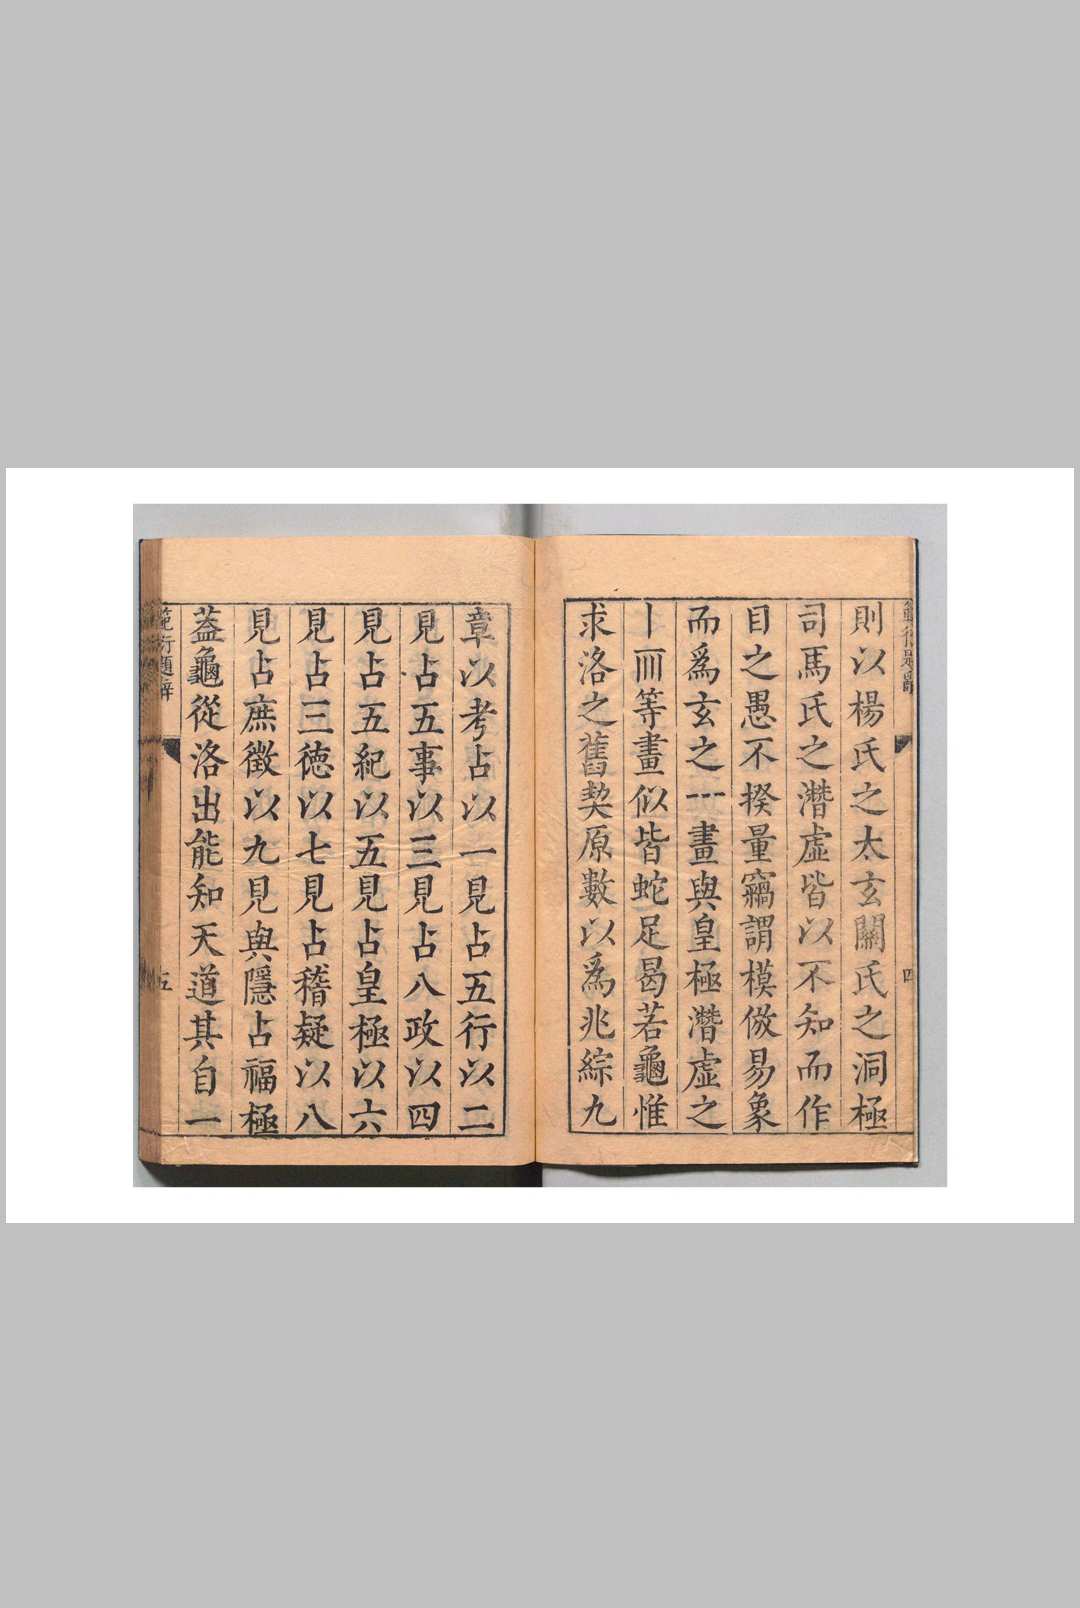 則以楊氏之太玄關氏之洞極
司馬氏之潛虛皆以不知而作
目之愚不揆量竊謂模倣易象
而爲玄之𝌀畫與皇極潛虛之
丨〣等畫似皆蛇足曷若龜惟
求洛之舊契原數以爲兆綜九
四
章以考占以一見占五行以二
見占五事以三見占八政以四
見占五紀以五見占皇極以六
見占三德以七見占稽疑以八
見占庶徵以九見與隱占福極
蓋龜從洛出能知天道其自一
範衍題辭
五